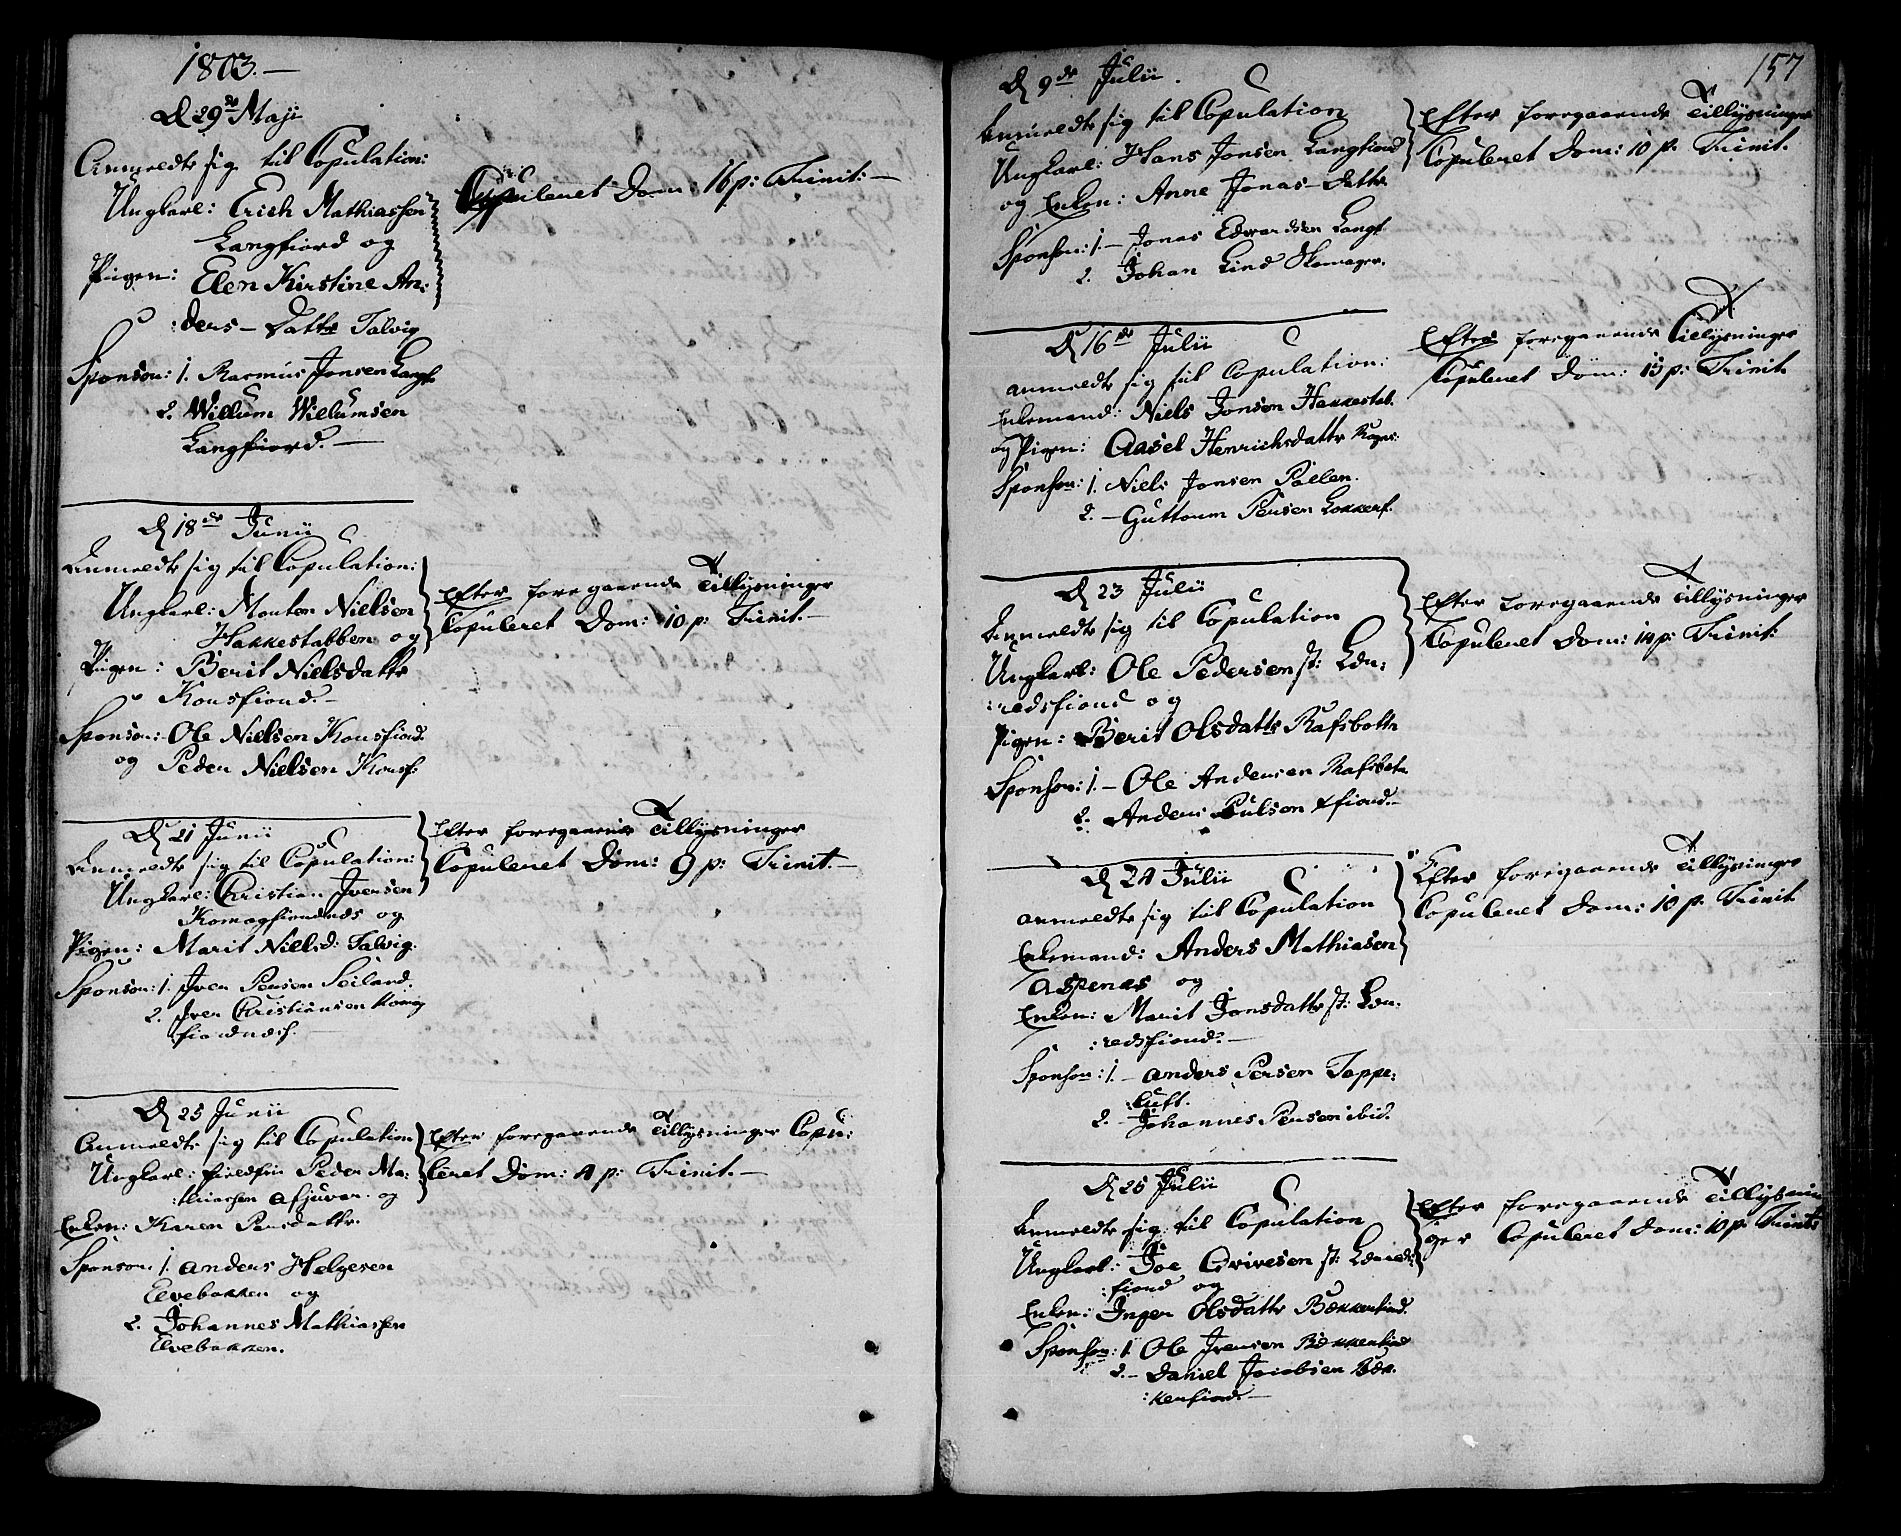 1803.—
D 29de Maji
Anmeldte sig til Copulation:
Ungkarl: Erich Mathiassen
Langfiord og
Pigen: Elen Kirstine An:
:ders- Datter Talvig
Sponson: 1. Rasmus Jonsen Langf.
2. Willum Willumsen
Langfiord.—
Copuleret Dom: 16 p: Trinit:—
D 18de Junii
Anmeldte sig til Copulation:
Ungkarl: Morten Nielsen
Hakkestabben og
Pigen: Berit Nielsdatter
Korsfiord.—
Sponson: Ole Nielsen Korsfiord.
og Peder Nielsen Korsf:
Efter foregaaende Tillysninger
Copuleret Dom: 10 p: Trinit.—
D 21 Junii
Anmeldte sig til Copulation:
Ungkarl: Christian Iversen
Komagfiordnæs og
Pigen: Marit Nielsd: Talvig.
Sponson: 1. Iver Persen Seiland.
2. Iver Christiansen Komag
fiordnæs.
Efter foregaaende Tillysninger
Copuleret Dom: 9 p: Trinit.—
D 25 Junii
Anmeldte sig til Copulation
Ungkarl: fieldfin Peder Ma:
:thiassen afjuvar. og
Enken: Karen Persdatter.
Sponson: 1. Anders Helgesen
Elvebakken og
2. Johannes Mathiassen
Elvebakken.
Efter foregaaende Tillysninger Copu:
leret Dom: 4 p: Trinit.—
157
D 9de Julii.
Anmeldte sig til Copulation
Ungkarl: Hans Jonsen Langfiord
og Enken: Anne Jonas-Datter
Sponson: 1.— Jonas Edvardsen Langf.
2. Johan Lind Skomager.
Efter foregaaende Tillysninger
Copuleret Dom: 10 p: Trinit.
D 16de Julii
anmeldte sig til Copulation:
Enkemand: Niels Jonsen Hakkestab.
og Pigen: Aasel Henrichsdatter
Sponson: 1. Niels Jonsen Pollen.
2.— Guttorm Persen Lokkerf.
Efter foregaaende Tillysninger
Copuleret Dom: 13 p: Trinit.
D 23 Julii
Anmeldte sig til Copulation
Ungkarl: Ole Pedersen st: Læ:
:redsfiord og
Pigen: Berit Olsdatter Rafsbotn
Sponson: 1.— Ole Andersen Rafsbotn
2. Anders Pulsen xfiord.—
Efter foregaaende Tillysninger
Copuleret Dom: 14 p: Trinit:
D 24 Julii
anmeldte sig til Copulation
Enkemand: Anders Mathiasen
Aspenæs og
Enken: Marit Jonsdatter st: Læ:
:redsfiord.—
Sponson: 1.— Anders Persen Toppe:
:luft.
2.— Johannes Persen ibid.
Efter foregaaende Tillysninger
Copuleret Dom: 10 p: Trinit
D 25 Julii
Anmeldte sig til Copulation
Ungkarl: Joe Griversen st: Læreds:
:fiord og
Enken: Inger Olsdatter Bækkerfiord.
Sponson: 1. Ole Iversen Bækkerfiord
2.— Daniel Jacobsen Bæk.
:kerfiord.—
Efter foregaaende Tillysnin
ger Copuleret Dom: 10 p: Trinit: